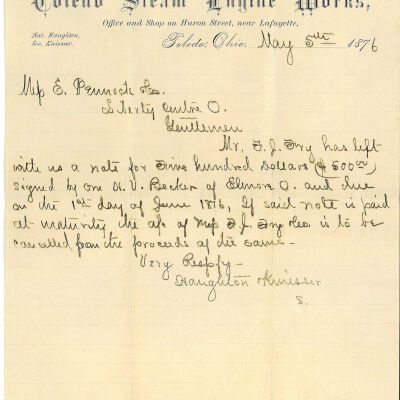 Toledo Steam Engine Works,
Office and Shop on Huron Street, near Lafayette,
Nat. Haughton,
Geo. Kniesser.
Toledo, Ohio, May 5th 1876
Mess E. Pennock &Co.
Liberty Centre O.
Gentlemen
Mr. F. J. Fry has left
with us a note for Five hundred Dollars ($500 00)
signed by one A. V. Becker of Elmore O. and due
on the 1st day of June 1876, If said note is paid
at maturity the a/c of Mess F. J. Fry &Co is to be
cancelled from the proceeds of the same-
Very Respfy-
Haughton Kniesser
S.